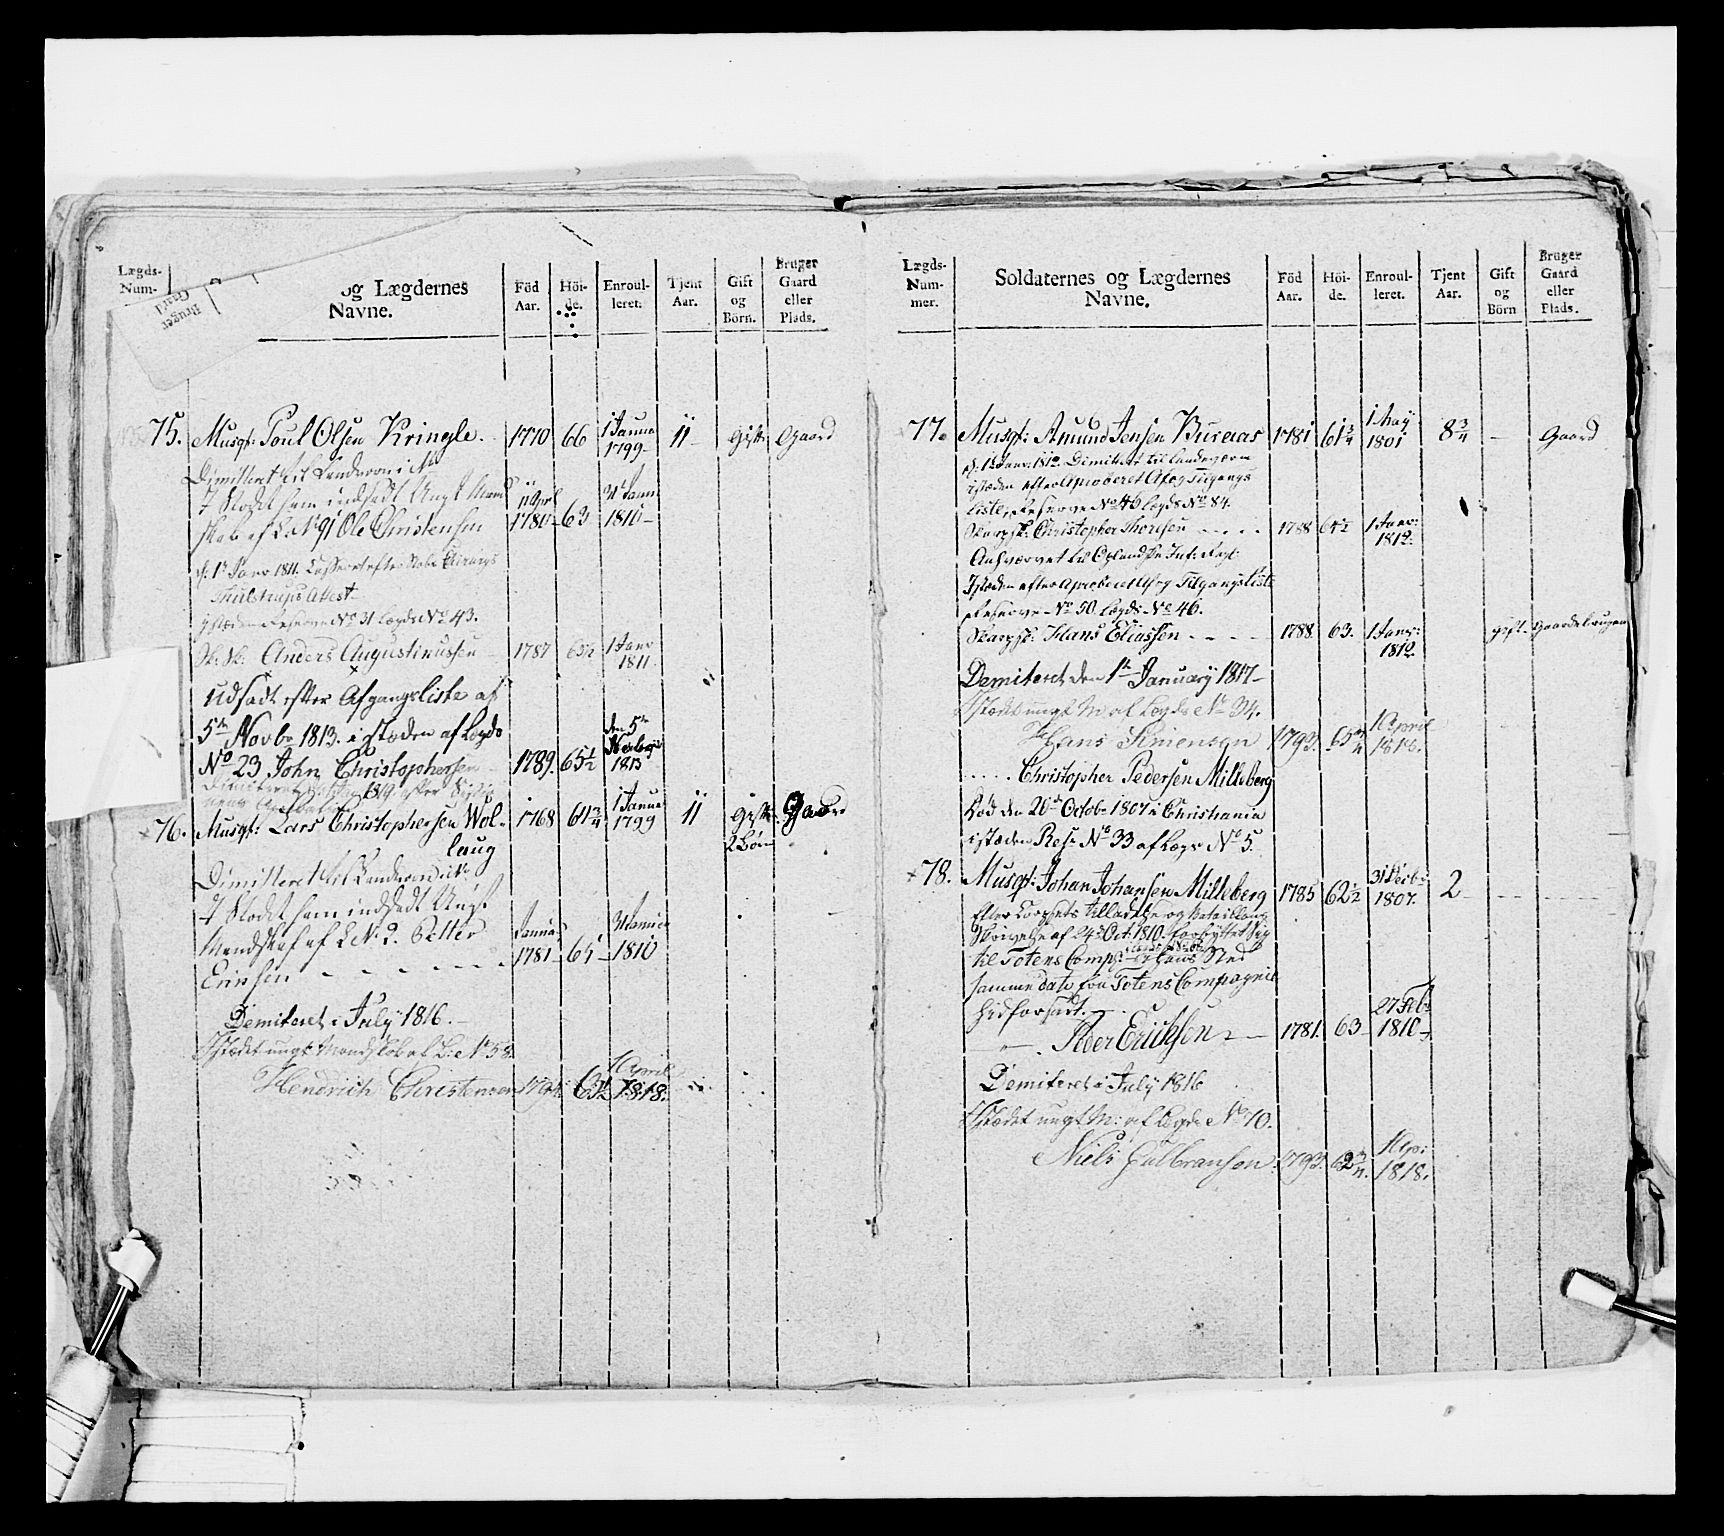 Lægds-
Num-
og Lægdernes
Navne.
Föd
Aar.
Höi-
de.
Enroul-
leret.
Tjent
Aar.
Gift
og
Börn.
Bruger
Gaard
eller
Plads.
Bruger
Gaard
75. Musqt: Poul Olsen Kringle. 1770 66 1 Janua 1799 11 Gift Gaard
Dimitteret til Landeværn i No
7 Stædet ham indsadt Ungt Mand
skab af L: No 91 Ole Christensen 11 April 1780 63 31 Janu 1810
d: 1te Janr 1811.
Attest
istæden Reserve No 31 Lægds No 43.
Sk: Sk: Anders Augustinussen 1787 63½ 1 Janr 1811.
Udsadt efter Afgangsliste af
5te Novbr 1813. istæden af Lægds
No 23 John Christophersen 1789. 65½ den 5te Novbr 1813
76. Musqt: Lars Christophersen Wol-
laug 1768 64¾ 1 Janua 1799 11 Gift 2 Börn Gaard
Dimitteret til Landeværn
7 Stædet ham indsadt Ungt
Mandskab af L No 2. Petter
Erichsen 1781 65 31 Janua 1810
Demiteret i July 1816.
Istædet ungt Mandskab af L: No 58.
Hendrich Christensen 1794 63½ 1 April 1818.
Lægds-
Num-
mer.
Soldaternes og Lægdernes
Navne.
Föd
Aar.
Höi-
de.
Enroul-
leret.
Tjent
Aar.
Gift
og
Börn
Bruger
Gaard
eller
Plads.
77. Musqt: Amund Jensen Bureaas 1781 61¾ 1 May 1801 8¾ Gaard
d: 1te Janr: 1812. Dimiteret til Landeværn
istæden efter Aproberet Af og Tilgangs
Liste, Reserve No 49 Lægds No 84.
Skarpsk: Christopher Thoresen 1788 64½ 1 Janr: 1812.
Anhværvet til Oplandske Inf: Regt:
Istæden efter Aproberet Af og Tilgangs Liste
Reserve No 50 Lægds No 46.
Skarpsk: Hans Eliassen 1788 63. 1 Janr: 1812 gift Gaardebruger
Demiteret den 1te January 1817
Istædet ungt M af Lægds No 34.
Hans Simensen 1793. 65¾ 1 April 1818.
Christopher Pedersen Milleberg
Föd den 20de Octobr 1807 i Christiania
istæden Ress No 33 af Lægs No 5.
78. Musqt: Johan Johansen Milleberg 1785 62½ 31 Decbr 1807. 2
Efter Corpsets tilladelse og Bataillons
Skrivelse af 24de Oct: 1810. forflyttet sig
til Totens Comp: i hans Sted
samme dato fra Totens Compagnie
hidforsadt.
Peder Ericksen 1781. 63 27 Feb: 1810
Demiteret i July 1816
Istædet ungt M: af Lægds No 70.
Niels Gulbransen 1793. 62¾. 1 Apr: 1818.